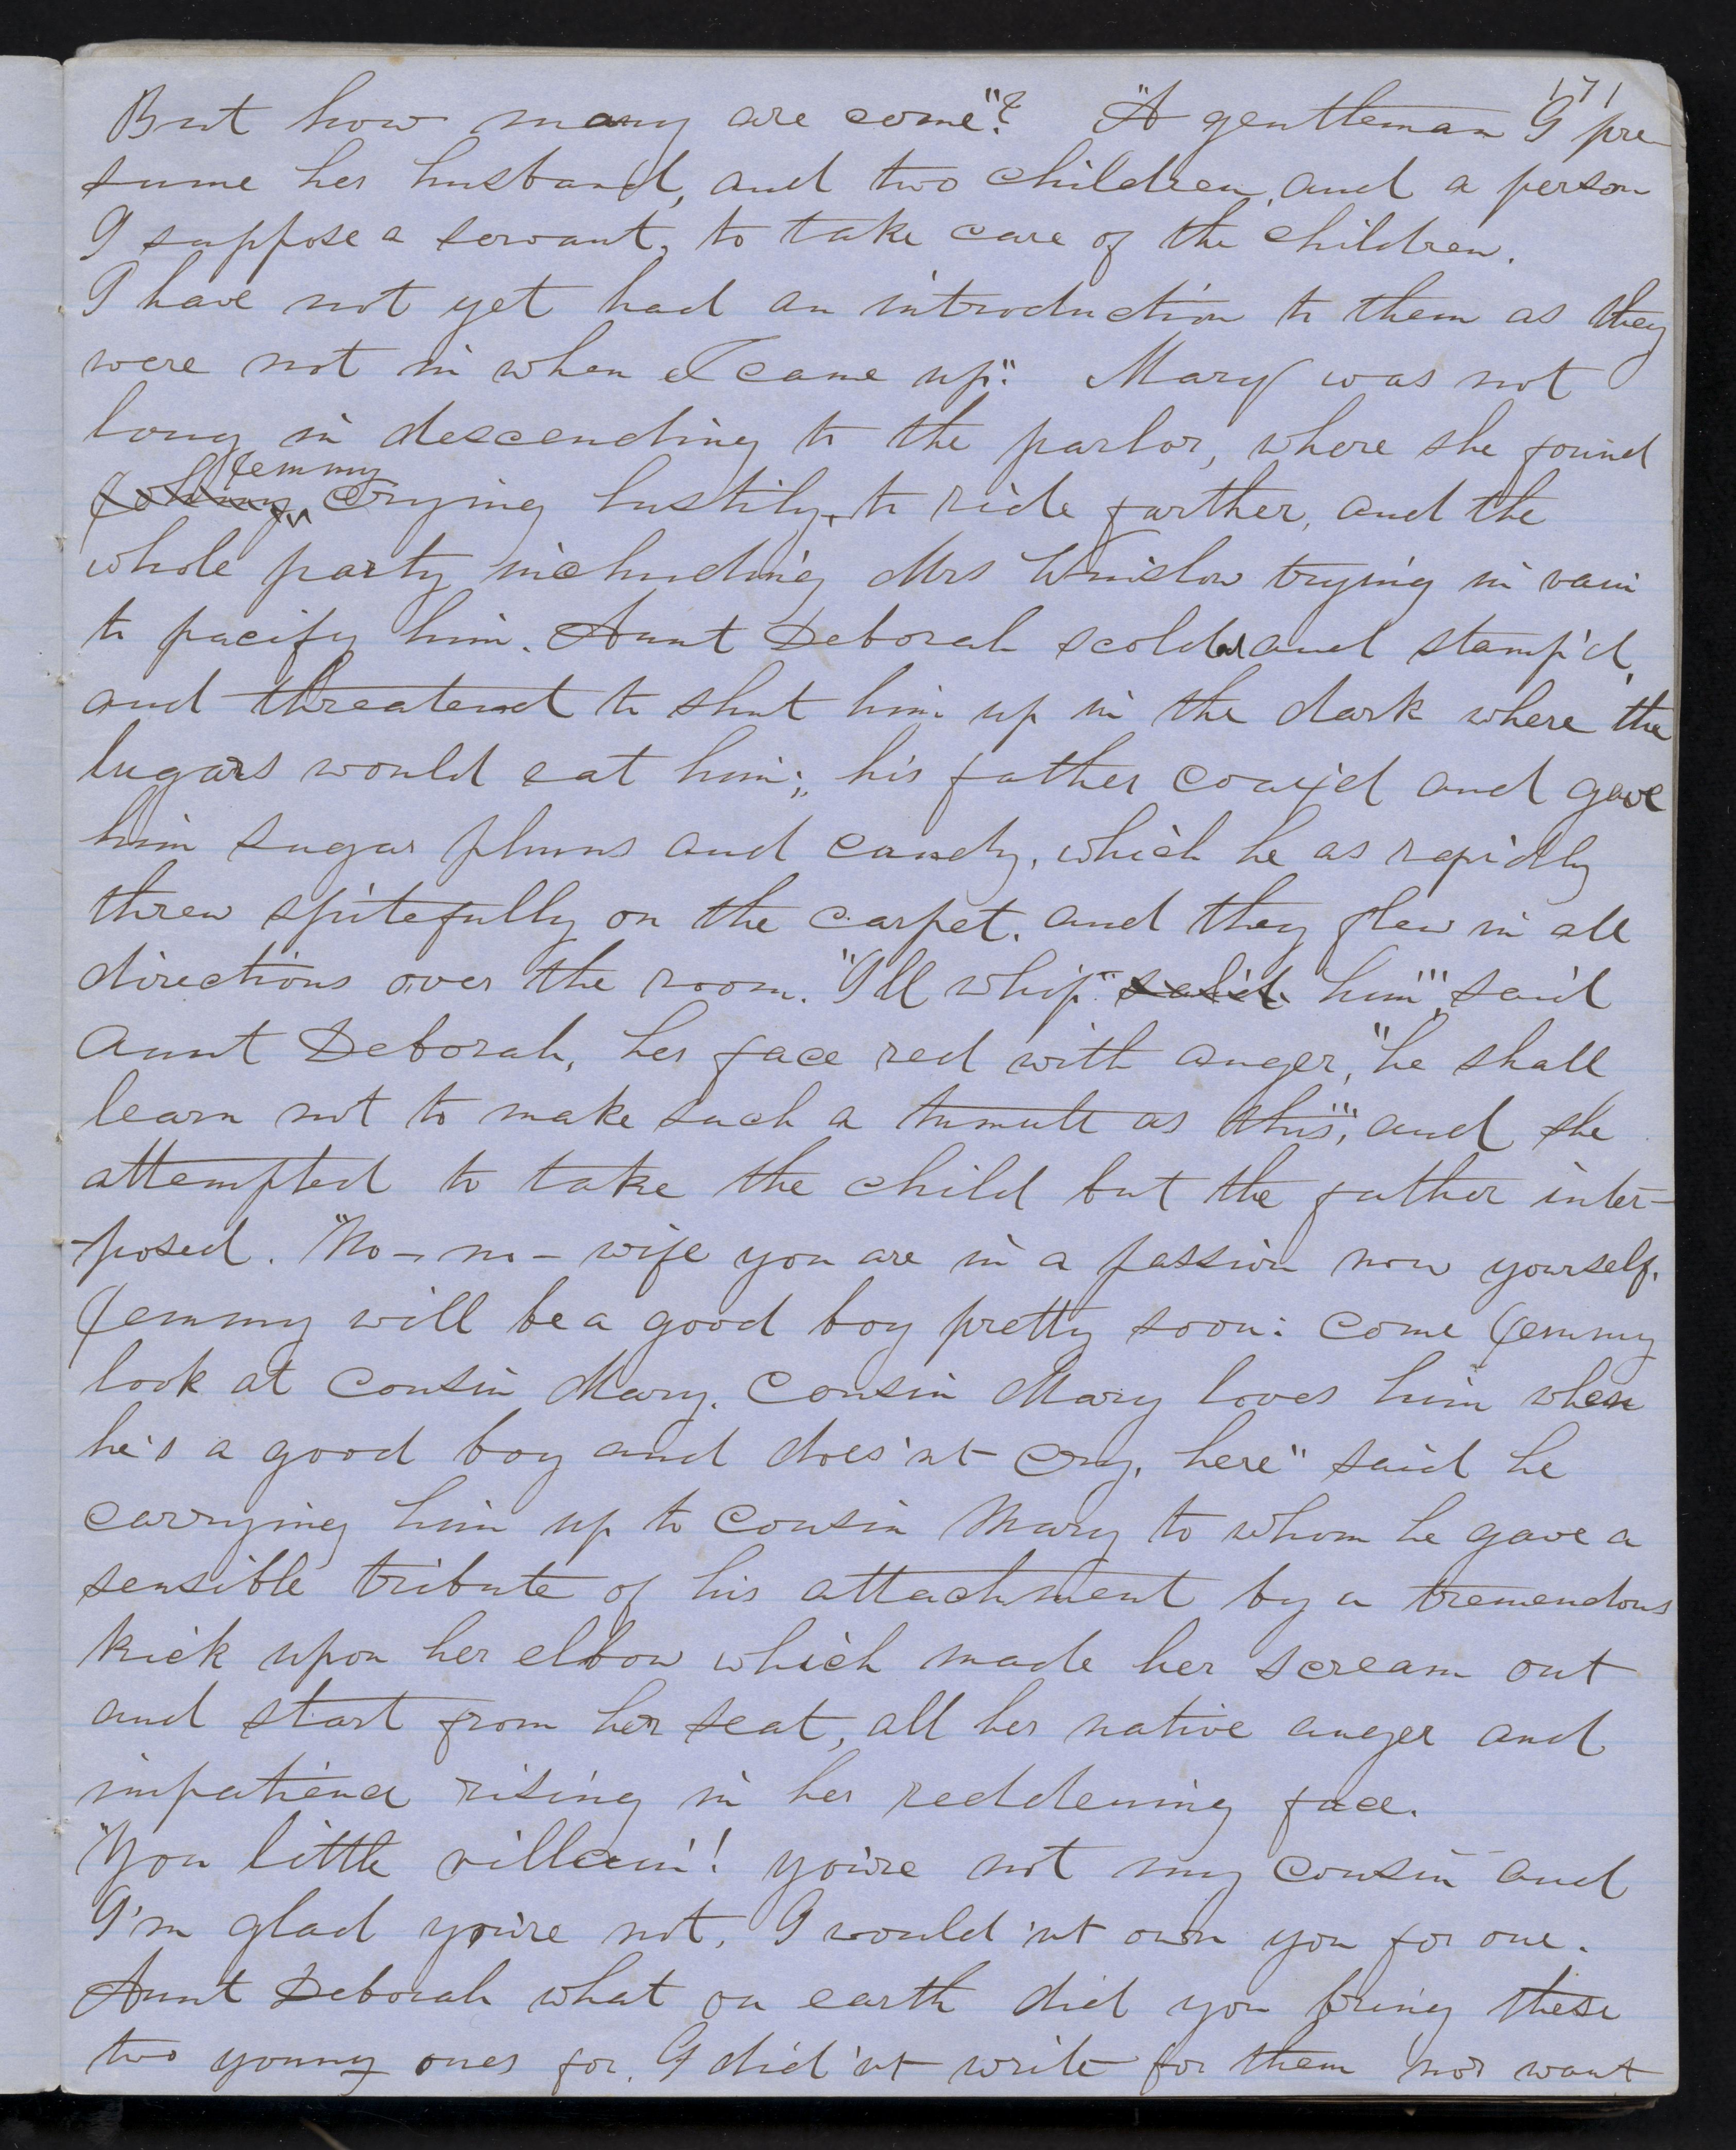 171
But how many are come"? "A gentleman I pre
sume her husband, and two children, and a person
I suppose a servant, to take care of the children.
I have not yet had an introduction to them as they
were not in when I came up." Mary was not
long in descending to the parlor, where she found
Jemmy
Johnny crying lustily, to ride further, and the
whole party including Mrs Winslow trying in vain
to pacify him. Aunt Deborah scolded and stamp'd,
and threatened to shut him up in the dark where the
bugars would eat him; his father coax'd and gave
him sugar plums and candy, which he as rapidly
threw spitefully on the carpet, and they flew in all
directions over the room. "I'll whip" said him", said
Aunt Deborah, her face red with anger, "he shall
learn not to make such a tumult as this", and she
attempted to take the child but the father inter-
-posed. "No - no - wife you are in a passion now yourself.
Jemmy will be a good boy pretty soon: come Jemmy
look at cousin Mary. Cousin Mary loves him when
he's a good boy and does'nt cry, here" said he
carrying him up to Cousin Mary to whom he gave a
sensible tribute of his attachment by a tremendous
kick upon her elbow which made her scream out
and start from her seat, all her native anger and
impatience rising in her reddening face.
"You little villain! you're not my cousin and
I'm glad you're not, I would 'nt own you for one.
Aunt Deborah what on earth did you bring these
two young ones for, I did'nt write for them nor want